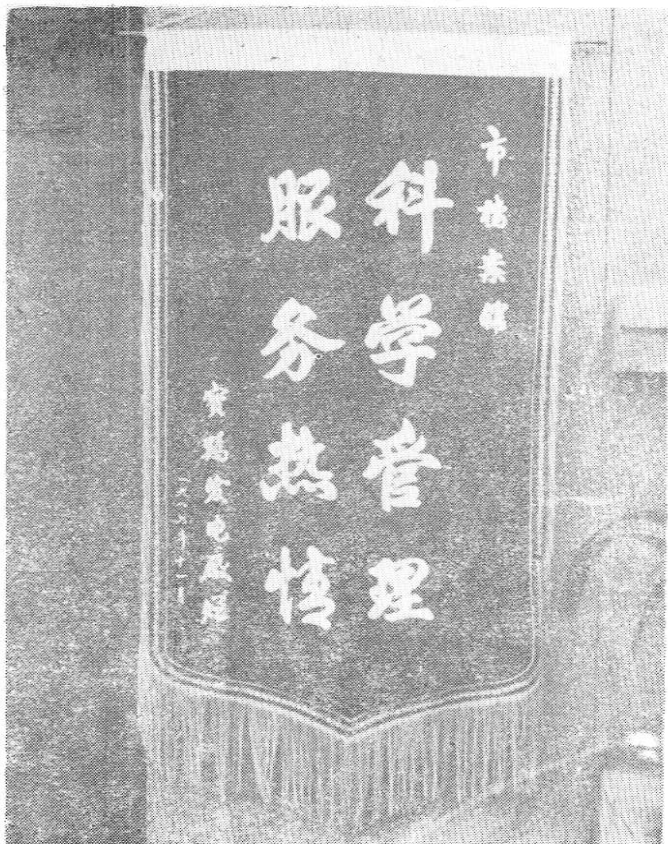 市档案馆
科学管理
服务热情
宝鸡发电厂赠